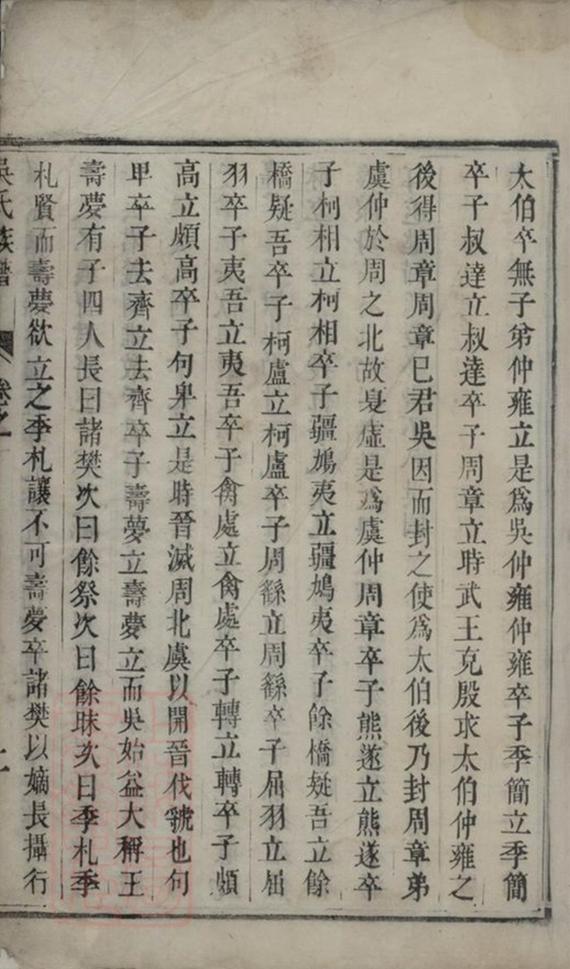 太伯卒無子弟仲雍立是爲吳仲雍仲雍卒子季簡立季簡
卒子叔達立叔達卒子周章立時武王克殷求太伯仲雍之
後得周章周章已君吳因而封之使爲太伯後乃封周章弟
虞仲於周之北故夏虛是爲虞仲周章卒子熊遂立熊遂卒
子柯相立柯相卒子彊鳩夷立彊鳩夷卒子餘橋疑吾立餘
橋疑吾卒子柯盧立柯盧卒子周繇立周繇卒子屈羽立屈
羽卒子夷吾立夷吾卒子禽處立禽處卒子轉立轉卒子頗
高立頗高卒子句卑立是時晉滅周北虞以開晉伐虢也句
卑卒子去齊立去齊卒子壽夢立壽夢立而吳始益大稱王
壽夢有子四人長曰諸樊次曰餘祭次曰餘昧次曰季札季
札賢而壽夢欲立之季札讓不可壽夢卒諸樊以嫡長攝行
吳氏族譜 卷之一